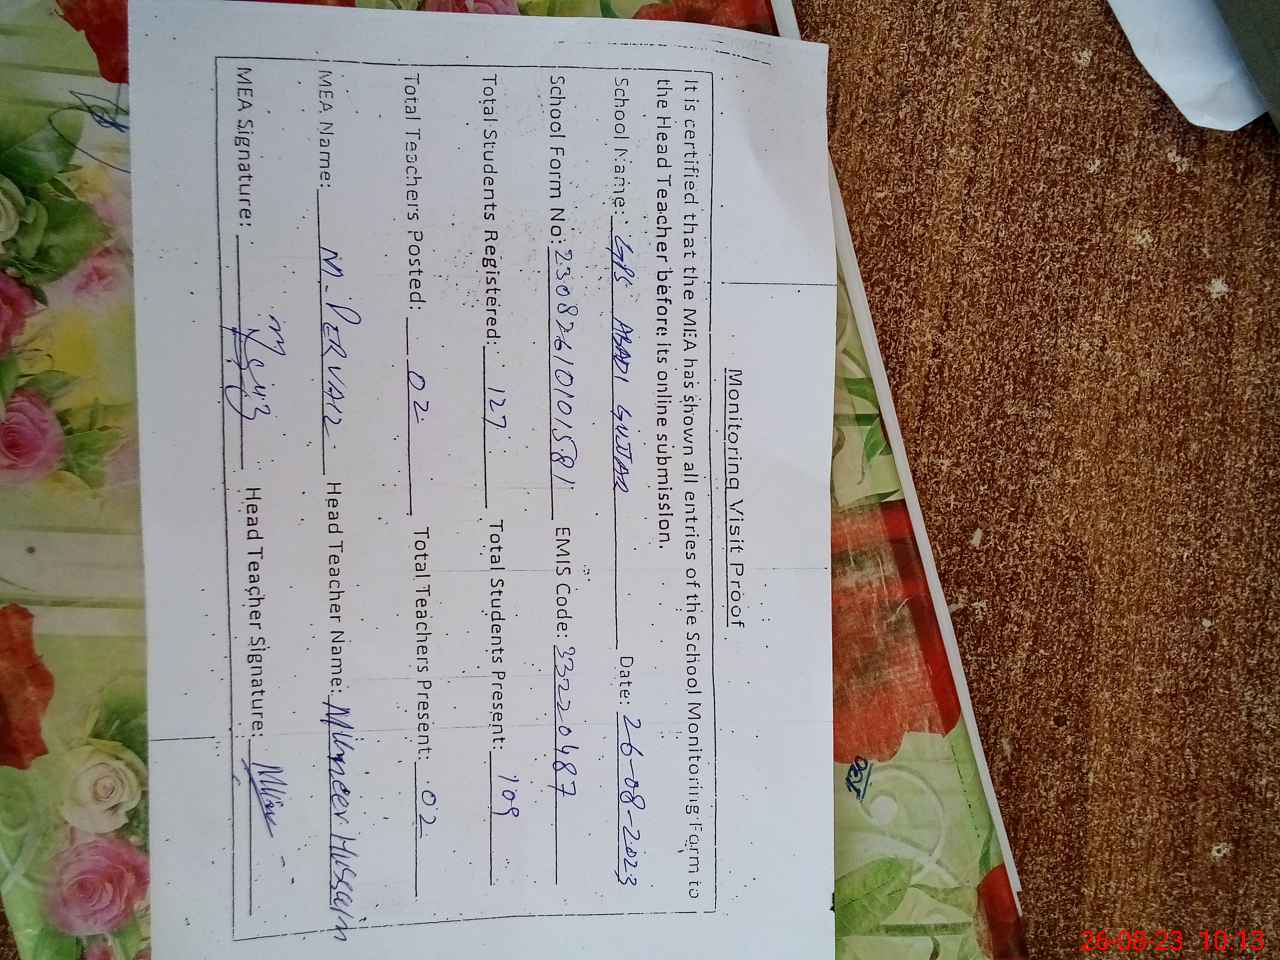 Monitoring Visit Proof
It is certified that the MEA has shown all entries of the School Monitoring Form to
the Head Teacher before its online submission.
School Name: GPS ABADI GUJJAR Date: 26-08-2023
School Form No: 23082610101581 EMIS Code: 33220487
Total Students Registered: 127 Total Students Present: 109
Total Teachers Posted: 02 Total Teachers Present: 02
MEA Name: M. PERVAIZ Head Teacher Name: Muneer Hussain
MEA Signature: Head Teacher Signature:
26-08-23 10:13